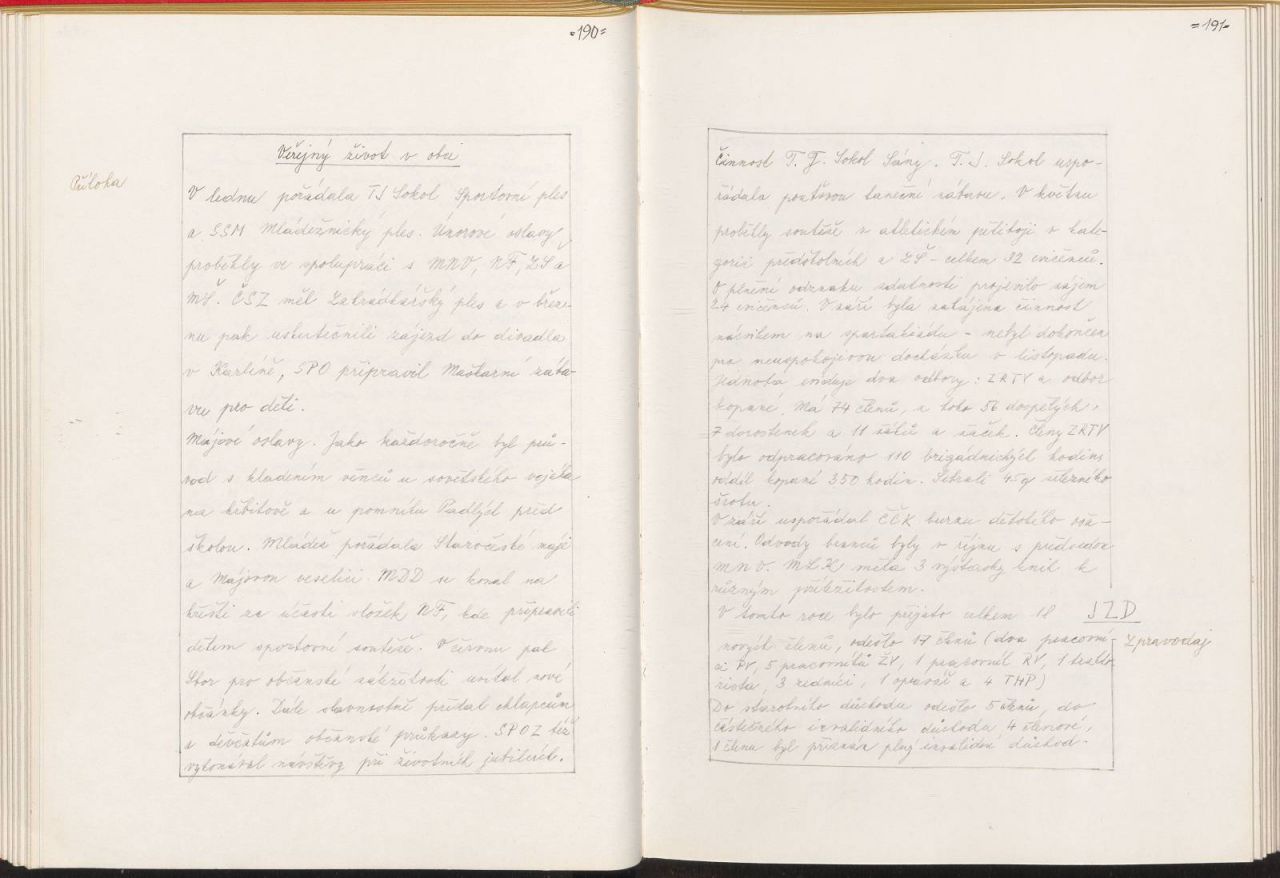 =190=
Veřejný život v obci
Příloha
V lednu pořádala TJ Sokol Sportovní ples
a SSM Mládežnický ples. Únorové oslavy
proběhly ve spolupráci s MNV, NF, ZŠ a
MŠ. ČSZ měl Zahrádkářský ples a v břez-
nu pak uskutečnili zájezd do divadla
v Karlíně, SPO připravil Maškarní zába-
vu pro děti.
Májové oslavy. Jako každoročně byl prů-
vod s kladením věnců u sovětského vojáka
na hřbitově a u pomníku Padlých před
školou. Mládež pořádala Staročeské máje
a Májovou veselici. MDD se konal na
hřišti za účasti složek NF, kde připravili
dětem sportovní soutěže. V červnu pak
Sbor pro občanské záležitosti uvítal nové
občánky. Dále slavnostně předal chlapcům
a děvčatům občanské průkazy. SPOZ též
vykonával návštěvy při životních jubileích.
=191=
Činnost T. J. Sokol Sány. T. J. Sokol uspo-
řádala pouťovou taneční zábavu. V květnu
proběhly soutěže v atletickém pětiboji v kate-
gorii předškolních a ZŠ - celkem 32 cvičenců.
O plnění odznaku zdatnosti projevilo zájem
24 cvičenců. V září byla zahájena činnost
nácvikem na spartakiádu - nebyl dokončen
pro neuspokojivou docházku v listopadu.
Jednota eviduje dva odbory: ZRTV a odbor
kopané. Má 74 členů, z toho 56 dospělých,
7 dorostenek a 11 žáků a žaček. Členy ZRTV
bylo odpracováno 110 brigádnických hodin,
oddíl kopané 350 hodin. Sebrali 45 q železného
šrotu.
V září uspořádal ČČK burzu dětského oša-
cení. Odvody branců byly v říjnu s předsedou
MNV. MLK měla 3 výstavky knih k
různým příležitostem.
V tomto roce bylo přijato celkem 18
JZD
nových členů, odešlo 17 členů (dva pracovní-
Zpravodaj
ci PV, 5 pracovníků ŽV, 1 pracovník RV, 1 trakto
rista, 3 zedníci, 1 opravář a 4 THP)
Do starobního důchodu odešlo 5 členů, do
částečného invalidního důchodu 4 členové,
1 členu byl přiznán plný invalidní důchod.